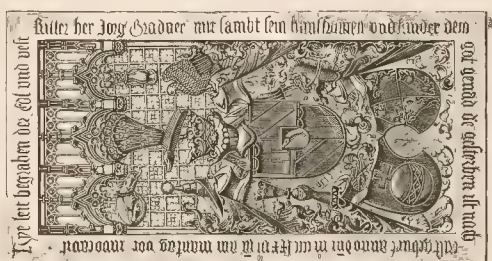 Hye leit begraben der Edl vnd vest
Ritter her Jorg Gradner mit sambt sein hausframen vnd kinder dem
got genad de gestorben ist nach
gepurt anno dm am mantag vor inuocauit